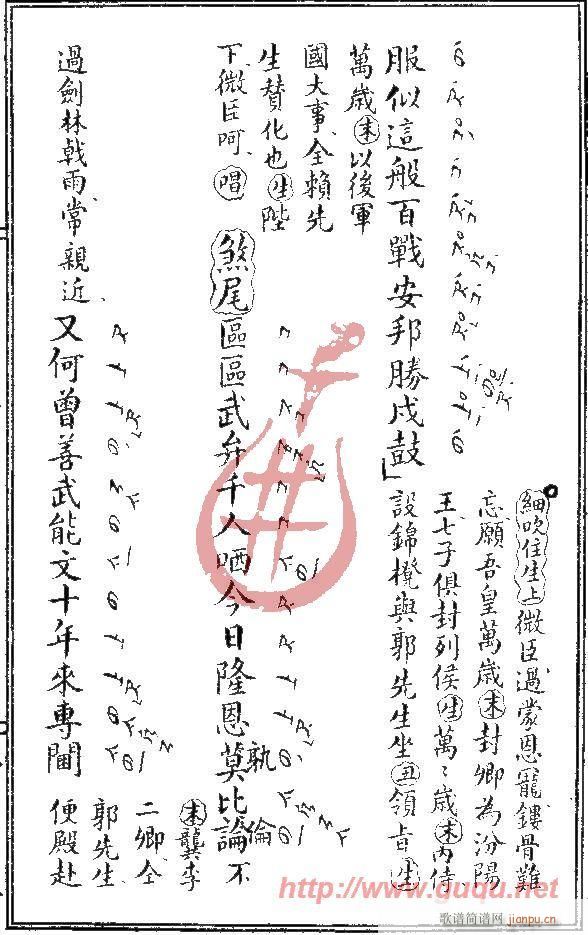 服似這般百戰安邦勝戍鼓」
細吹住生上微臣過蒙恩寵鏤骨難
忘願吾皇萬歲末封卿為汾陽
王七子俱封列侯生萬〻歲末內侍
設錦櫈與郭先生坐丑領旨生
萬歲末以後軍
國大事全賴先
生贊化也生陛
下微臣呵唱
煞尾區區武弁千人哂今日隆恩莫比論不
孰 倫
過劍林戟雨常親近又何曾善武能文十年來專閫
末龔李
二卿仝
郭先生
便殿赴
http://www.guqu.net
歌谱简谱网
jianpu.cn